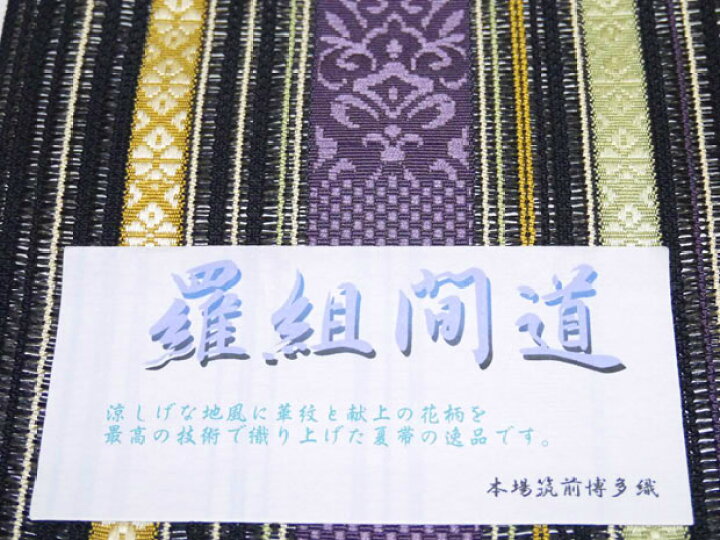 羅組間道
涼しげな地風に華紋と献上の花柄を
最高の技術で織り上げた夏帯の逸品です。
本場筑前博多織